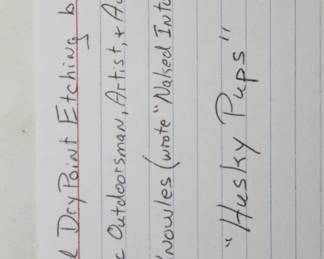 DryPoint Etching b
Outdoorsman, Artist, + Au
Knowles (wrote "Naked Into
"Husky Pups"